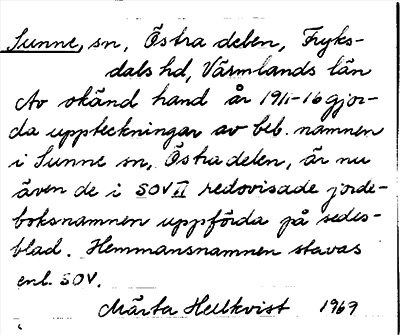 Sunne, sn, Östra delen, Fryks-
dals hd, Värmlands län
Av okänd hand år 1911-16 gjor-
da uppteckningar av beb. namnen
i Sunne sn, Östra delen, är nu
även de i SOV II redovisade jorde-
boksnamnen uppförda på sedes-
blad. Hemmansnamnen stavas
enl. SOV.
Märta Hellkvist 1969